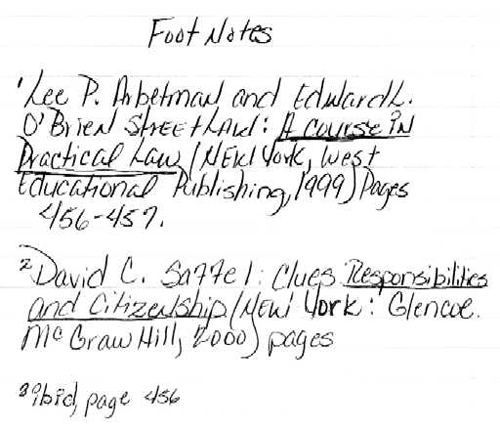 Foot Notes
¹Lee P. Arbetman and Edward L.
O'Brien Street Law: A Course in
Practical Law (New York, West
Educational Publishing, 1999) Pages
456-457.
²David C. Saffel: Clues Responsibilities
and Citizenship (New York: Glencoe.
McGraw Hill, 2000) pages
³Ibid, page 456